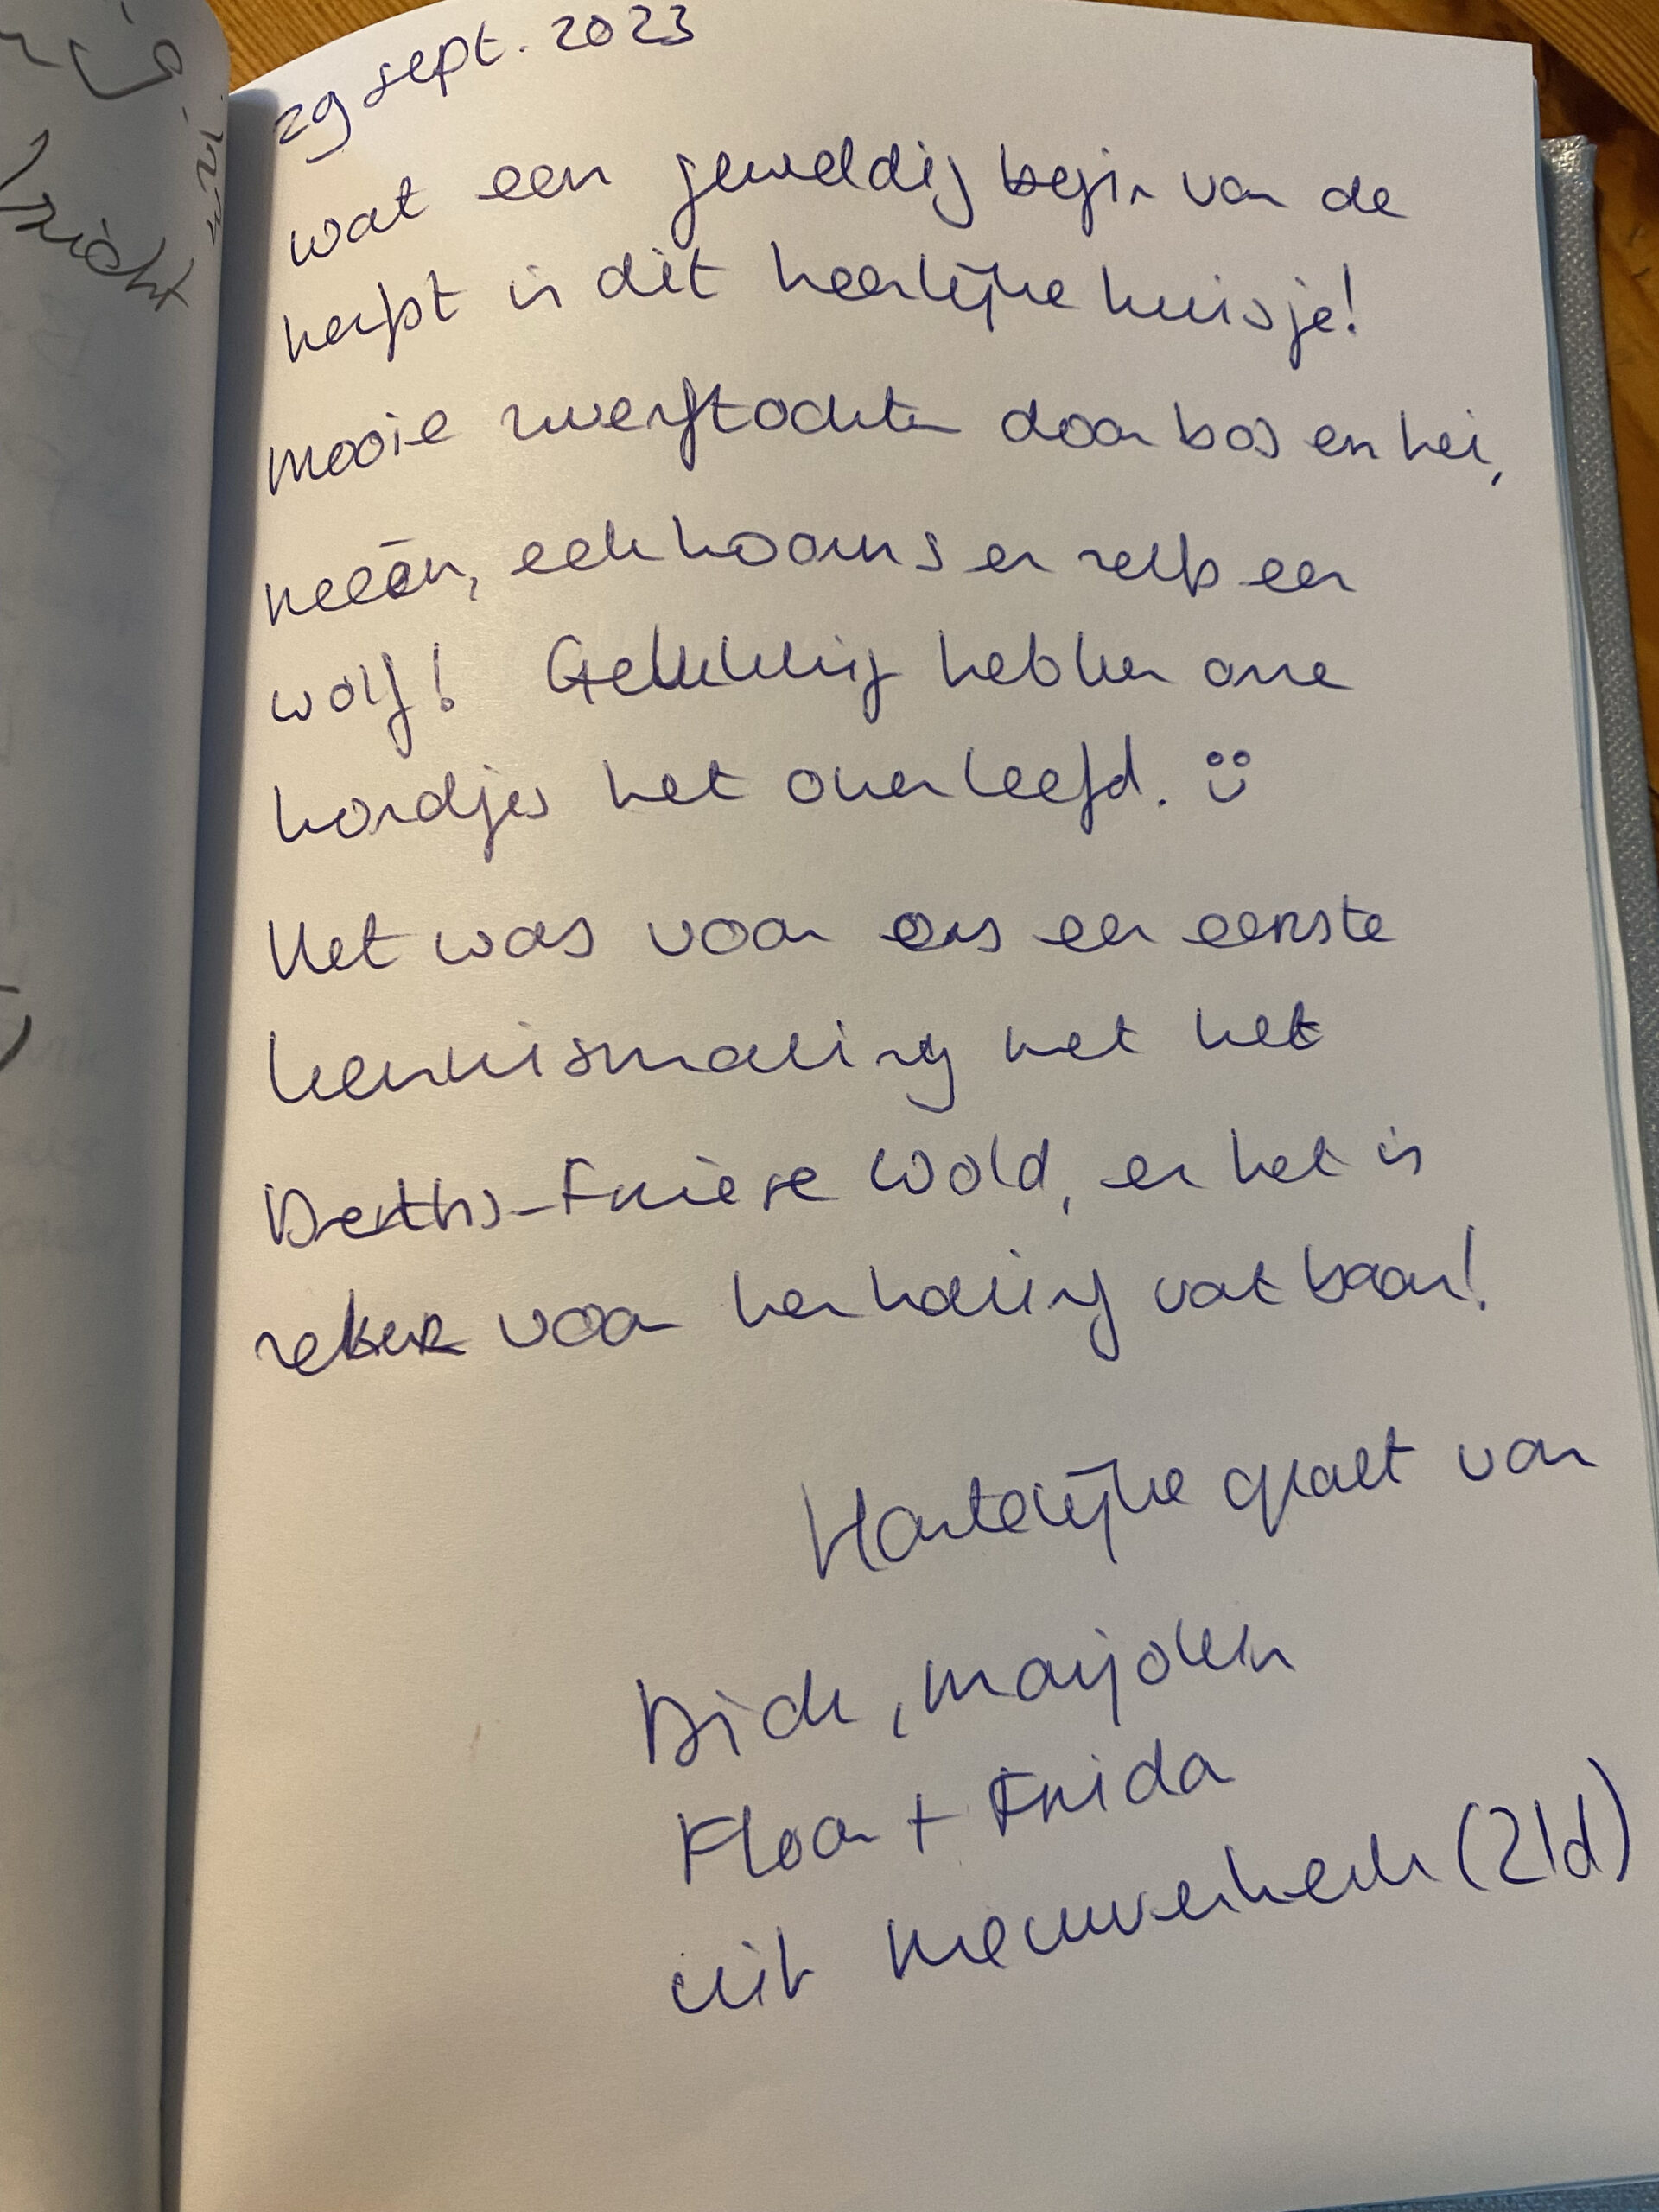 29 sept. 2023
wat een geweldig begin van de
herfst in dit heerlijke huisje!
mooie zwerftochten door bos en hei,
reeën, eekhoorns en zelfs een
wolf! Gelukkig hebben onze
hondjes het overleefd. :)
Het was voor ons een eerste
kennismaking met het
Drents-Friese Wold, en het is
zeker voor herhaling vatbaar!
Hartelijke groet van
Dick, Marjolein
Floor + Frida
uit Nieuwerkerk (Zld)